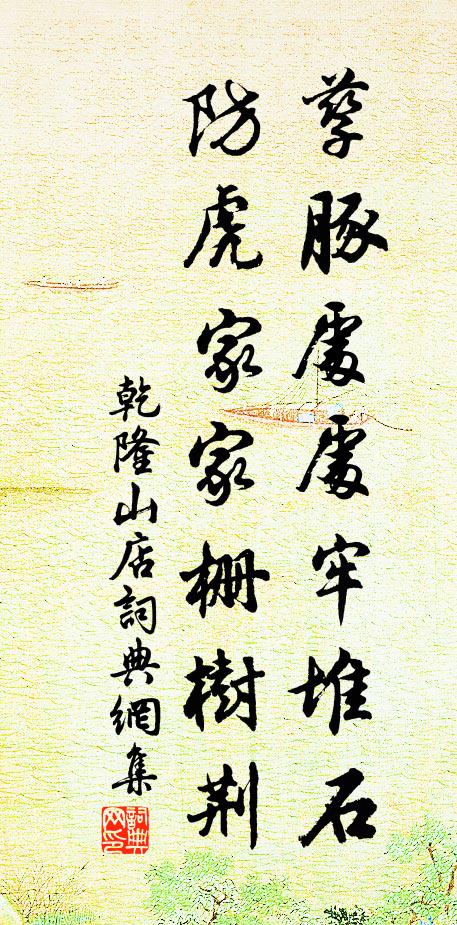 孳豚處處牢堆石
防虎家家柵樹荆
乾隆山店詞典網集
詞典網印